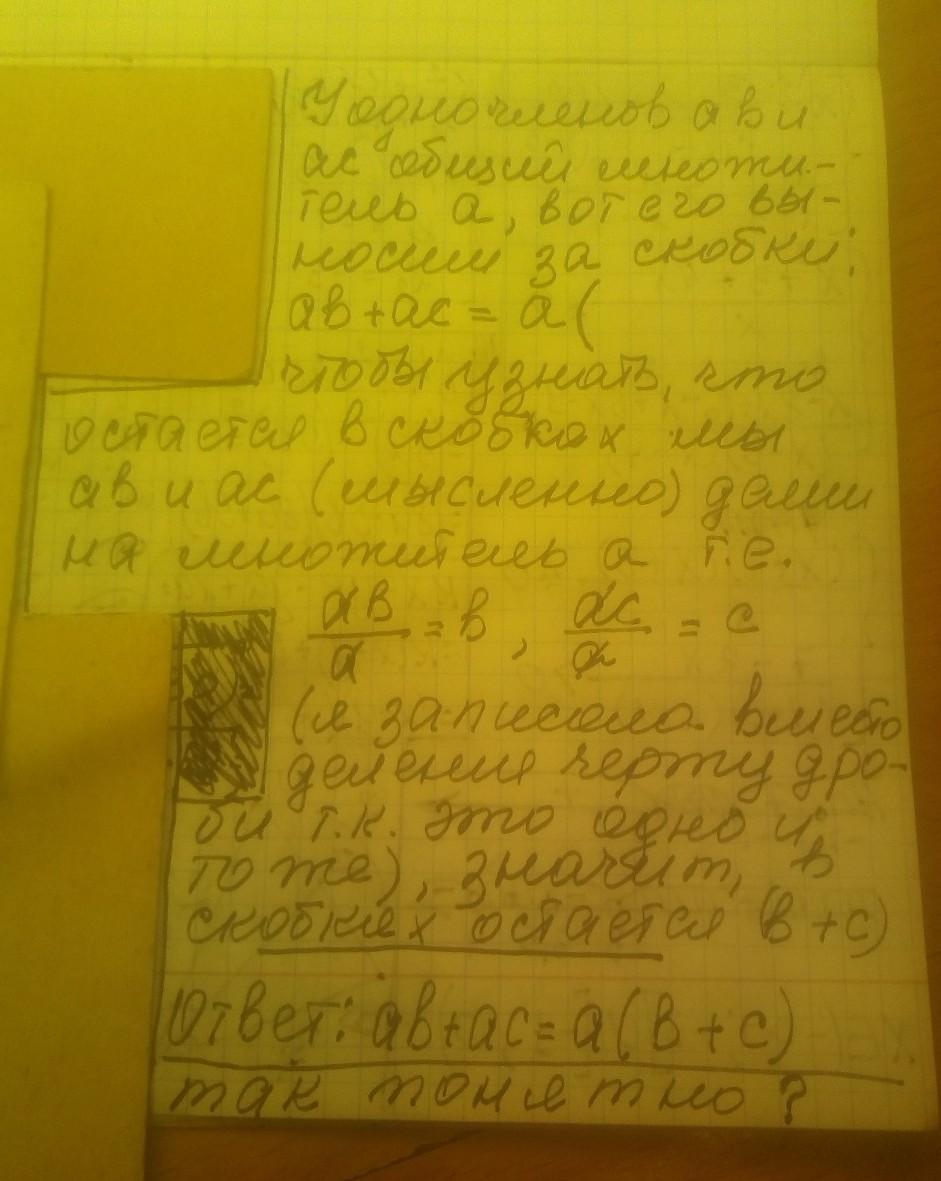 У одночленов ав и
ас общий множи-
тель а, вот его вы-
носим за скобки:
ав+ас = а(
чтобы узнать, что
остается в скобках мы
ав и ас (мысленно) делим
на множитель а т.е.
ав/а = в , ас/а = с
(я записала вместо
деления черту дро-
би т.к. это одно и
то же), значит, в
скобках остается (в+с)
Ответ: ав+ас=а(в+с)
так понятно?